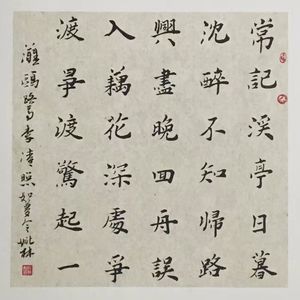 常記溪亭日暮
沈醉不知歸路
興盡晚回舟誤
入藕花深處爭
渡爭渡驚起一
灘鷗鷺李清照如夢令